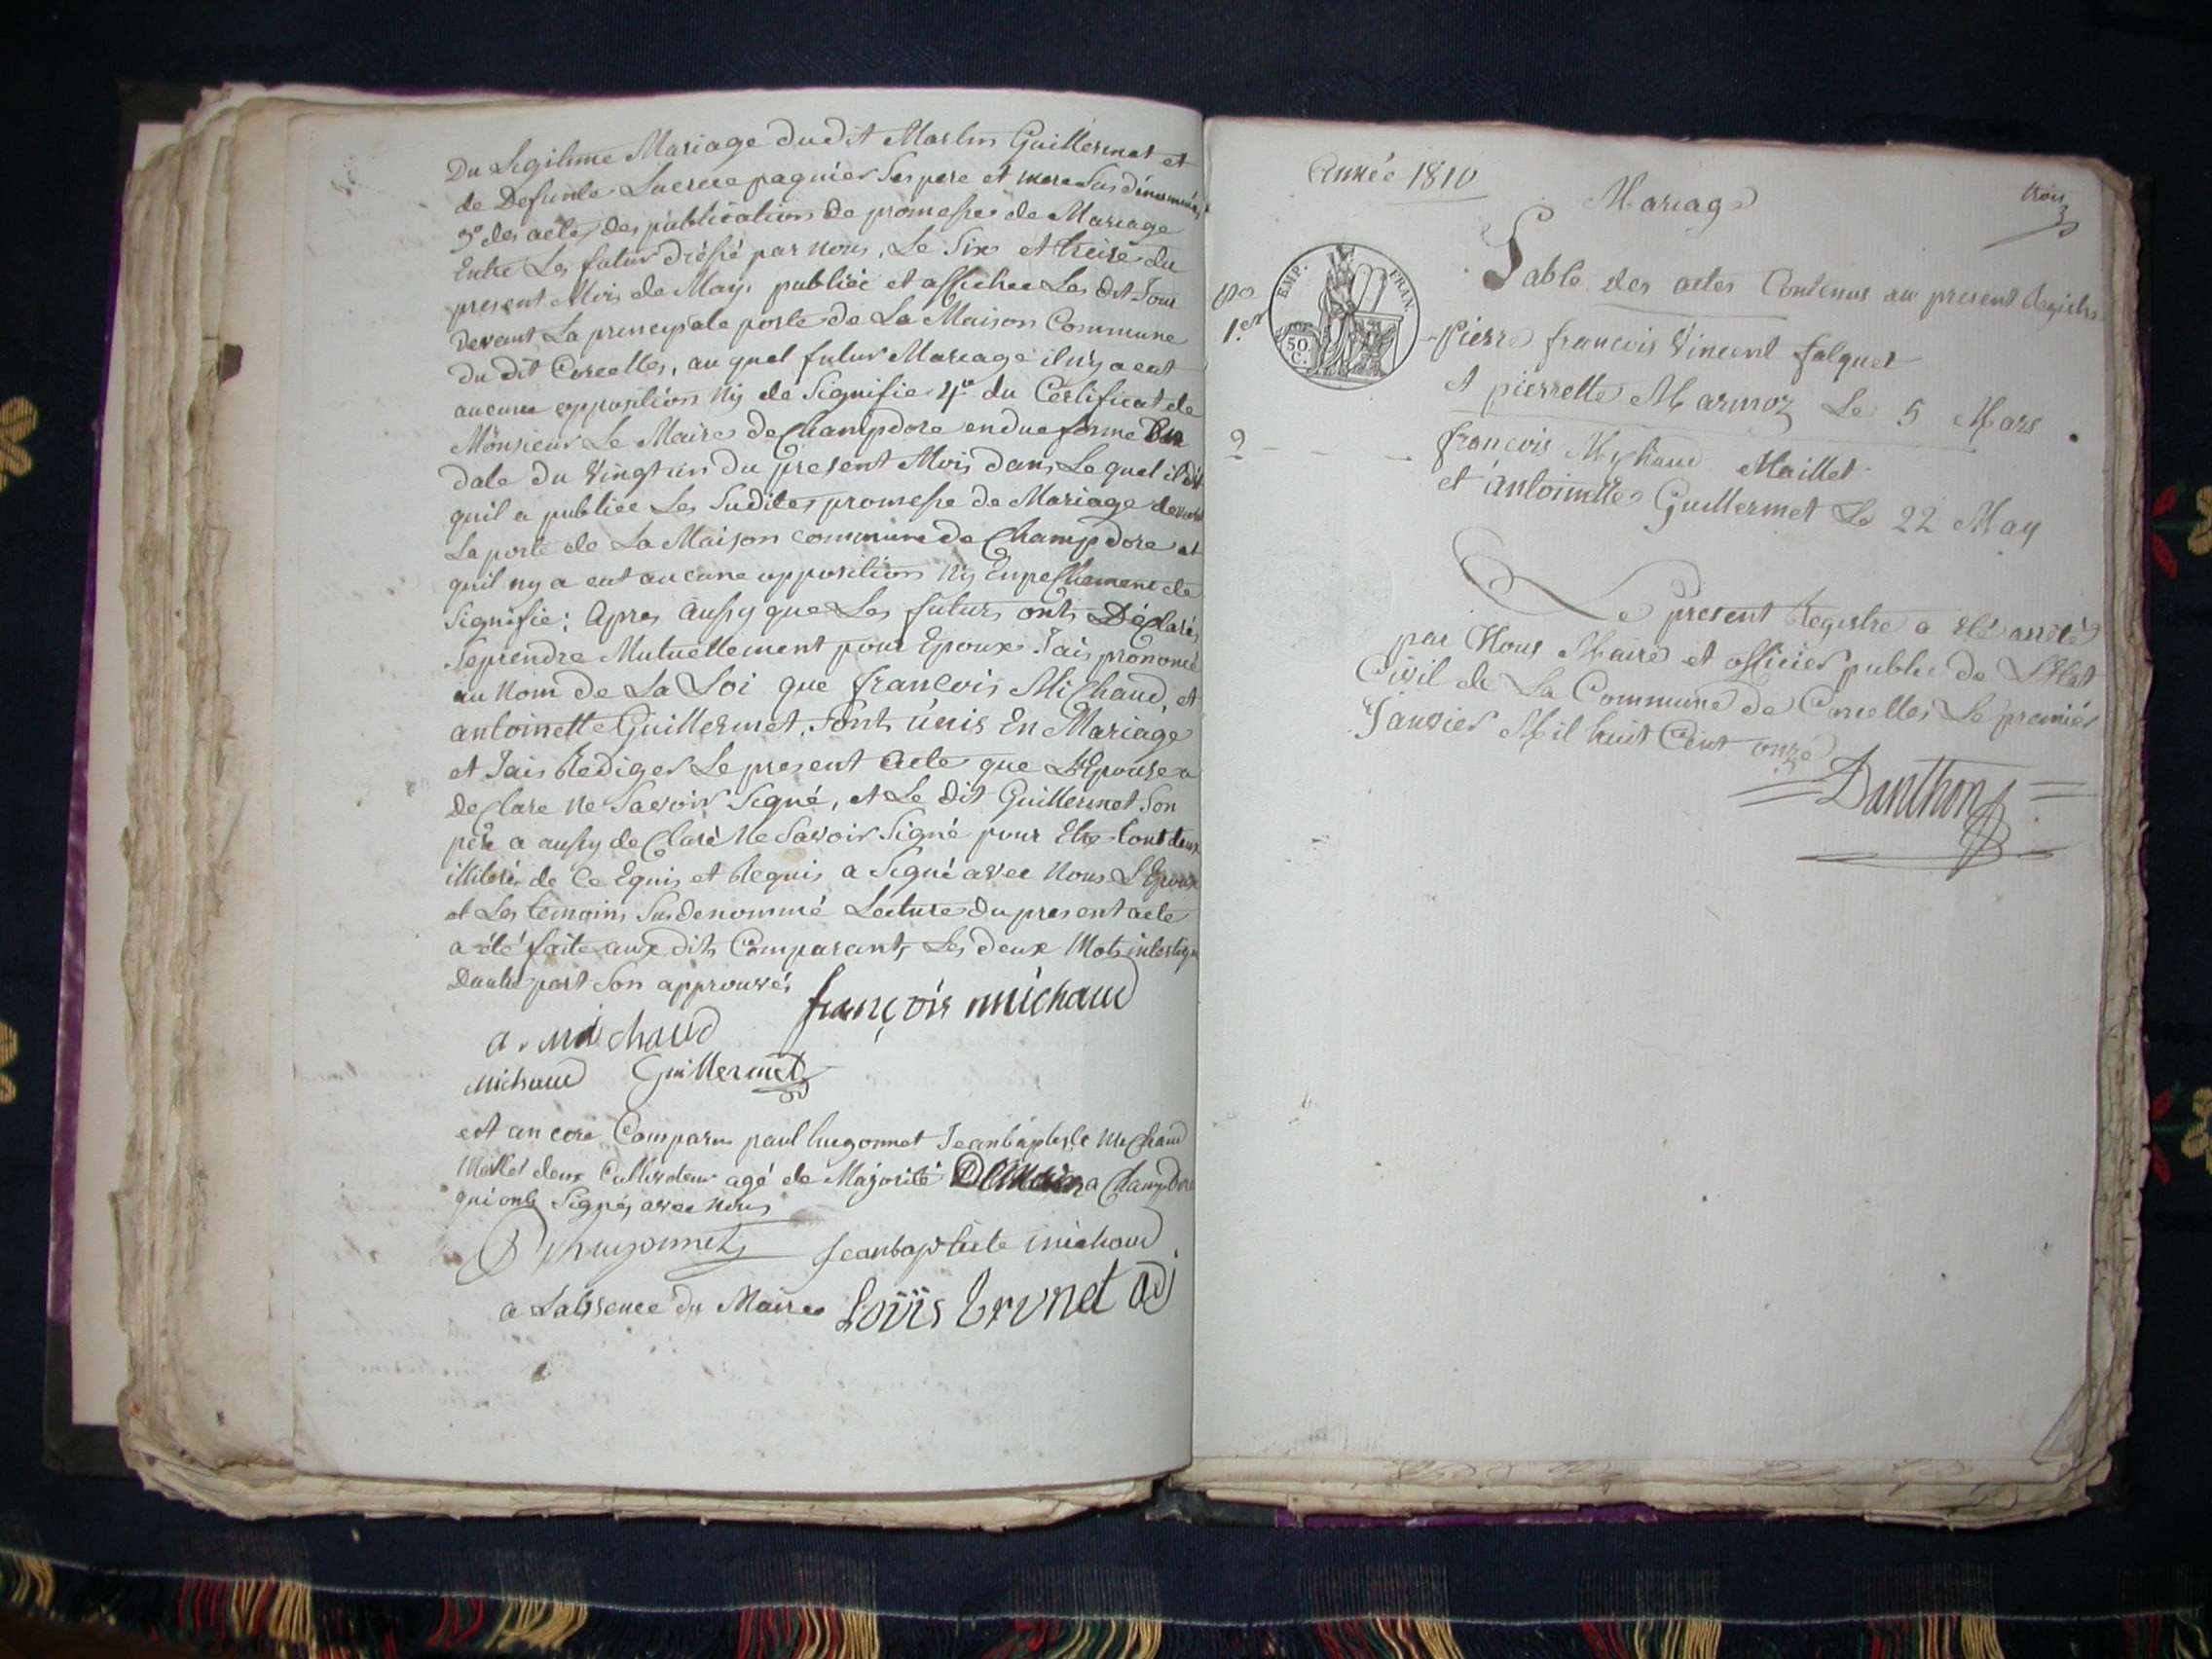 Du Legitime Mariage dudit Martin Guillermet et
de Defunte Lucrece paquier Ses pere et mere Susdénommés
3º des actes des publication de promesse de Mariage
Entre Les futur par nous, Le Six et treize du
present Mois de May, publiée et affichee Les dit Jour
Devant La principale porte de La Maison Commune
du dit Corcelles, au quel futur Mariage il n'y a eut
aucune opposition Ny de Signifie 4º du Certificat de
Monsieur Le Maire de Champdore en due forme
date du Vingt un du present Mois dans Le quel il dit
quil a publiee Les Sudites promesse de Mariage devant
La porte de La Maison commune de Champdore et
quil ny a eut aucune opposition Ny Enpechement de
Signifie; Apres aussy que Les futurs ont Déclarés
Seprendre Mutuellement pour Epoux Jais prononcé
au Nom de La Loi que francois Michaud, et
antoinette Guillermet, Sont Unis En Mariage
et Jais Rediger Le present acte que L'Epouse a
DeClare Ne Savoir Signé, et Le dit Guillermet Son
père a aussy deClaré Ne Savoir Signé pour Etre tout deux
illiteré de Ce Equis et Requis a Signé avec Nous L'Epoux
et Les temoins Susdenommé Lecture du present acte
a été faite aux dits Comparants Les deux Mots
Dautre part Son approuvés
françois michaud
a. michaud
michaud Guillermet
est ancore Comparu paul hugonnet Jeanbaptiste Michaud
Mallet deux Cultivateur agé de Majorité a Champdore
qui ont Signés avec nous
P hugonnet Jeanbaptiste michaud
a Labsence du Maire Loüis brunet adj
Année 1810
Mariage
trois
3
Table des actes Contenus au present Registre
EMP. FRAN.
50
C.
Nº
1.er
Pierre francois Vincent falquet
et pierrette Marmoz Le 5 Mars
2 - - - francois Mychaud Maillet
et antoinette Guillermet Le 22 May
Le present Registre a été arreté
par Nous Maire et officier public de L'Etat
Civil de La Commune de Corcelles Le premiér
Janvier Mil huit Cent onze
Danthon